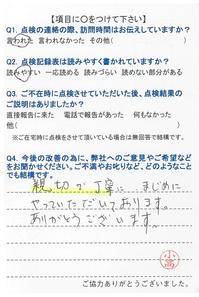 【項目に○をつけて下さい】
Q1. 点検の連絡の際、訪問時間はお伝えしていますか？
言われた 言われなかった その他(　　　)
Q2. 点検記録表は読みやすく書かれていますか？
読みやすい 一応読める 読みづらい 読めない部分がある
Q3. ご不在時に点検させていただいた後、点検結果の
ご説明はありましたか？
直接報告に来た 電話で報告があった 何もなかった
他(　　　)
※ご在宅時に点検をさせて頂いている場合は無回答で結構です。
Q4. 今後の改善の為に、弊社へのご意見やご希望など
をお聞かせください。ご不満やお叱りなど、どのようなこ
とでも結構です。
親切で丁寧に まじめに
やっていただいております。
ありがとうございます。
小高
ご協力ありがとうございました。